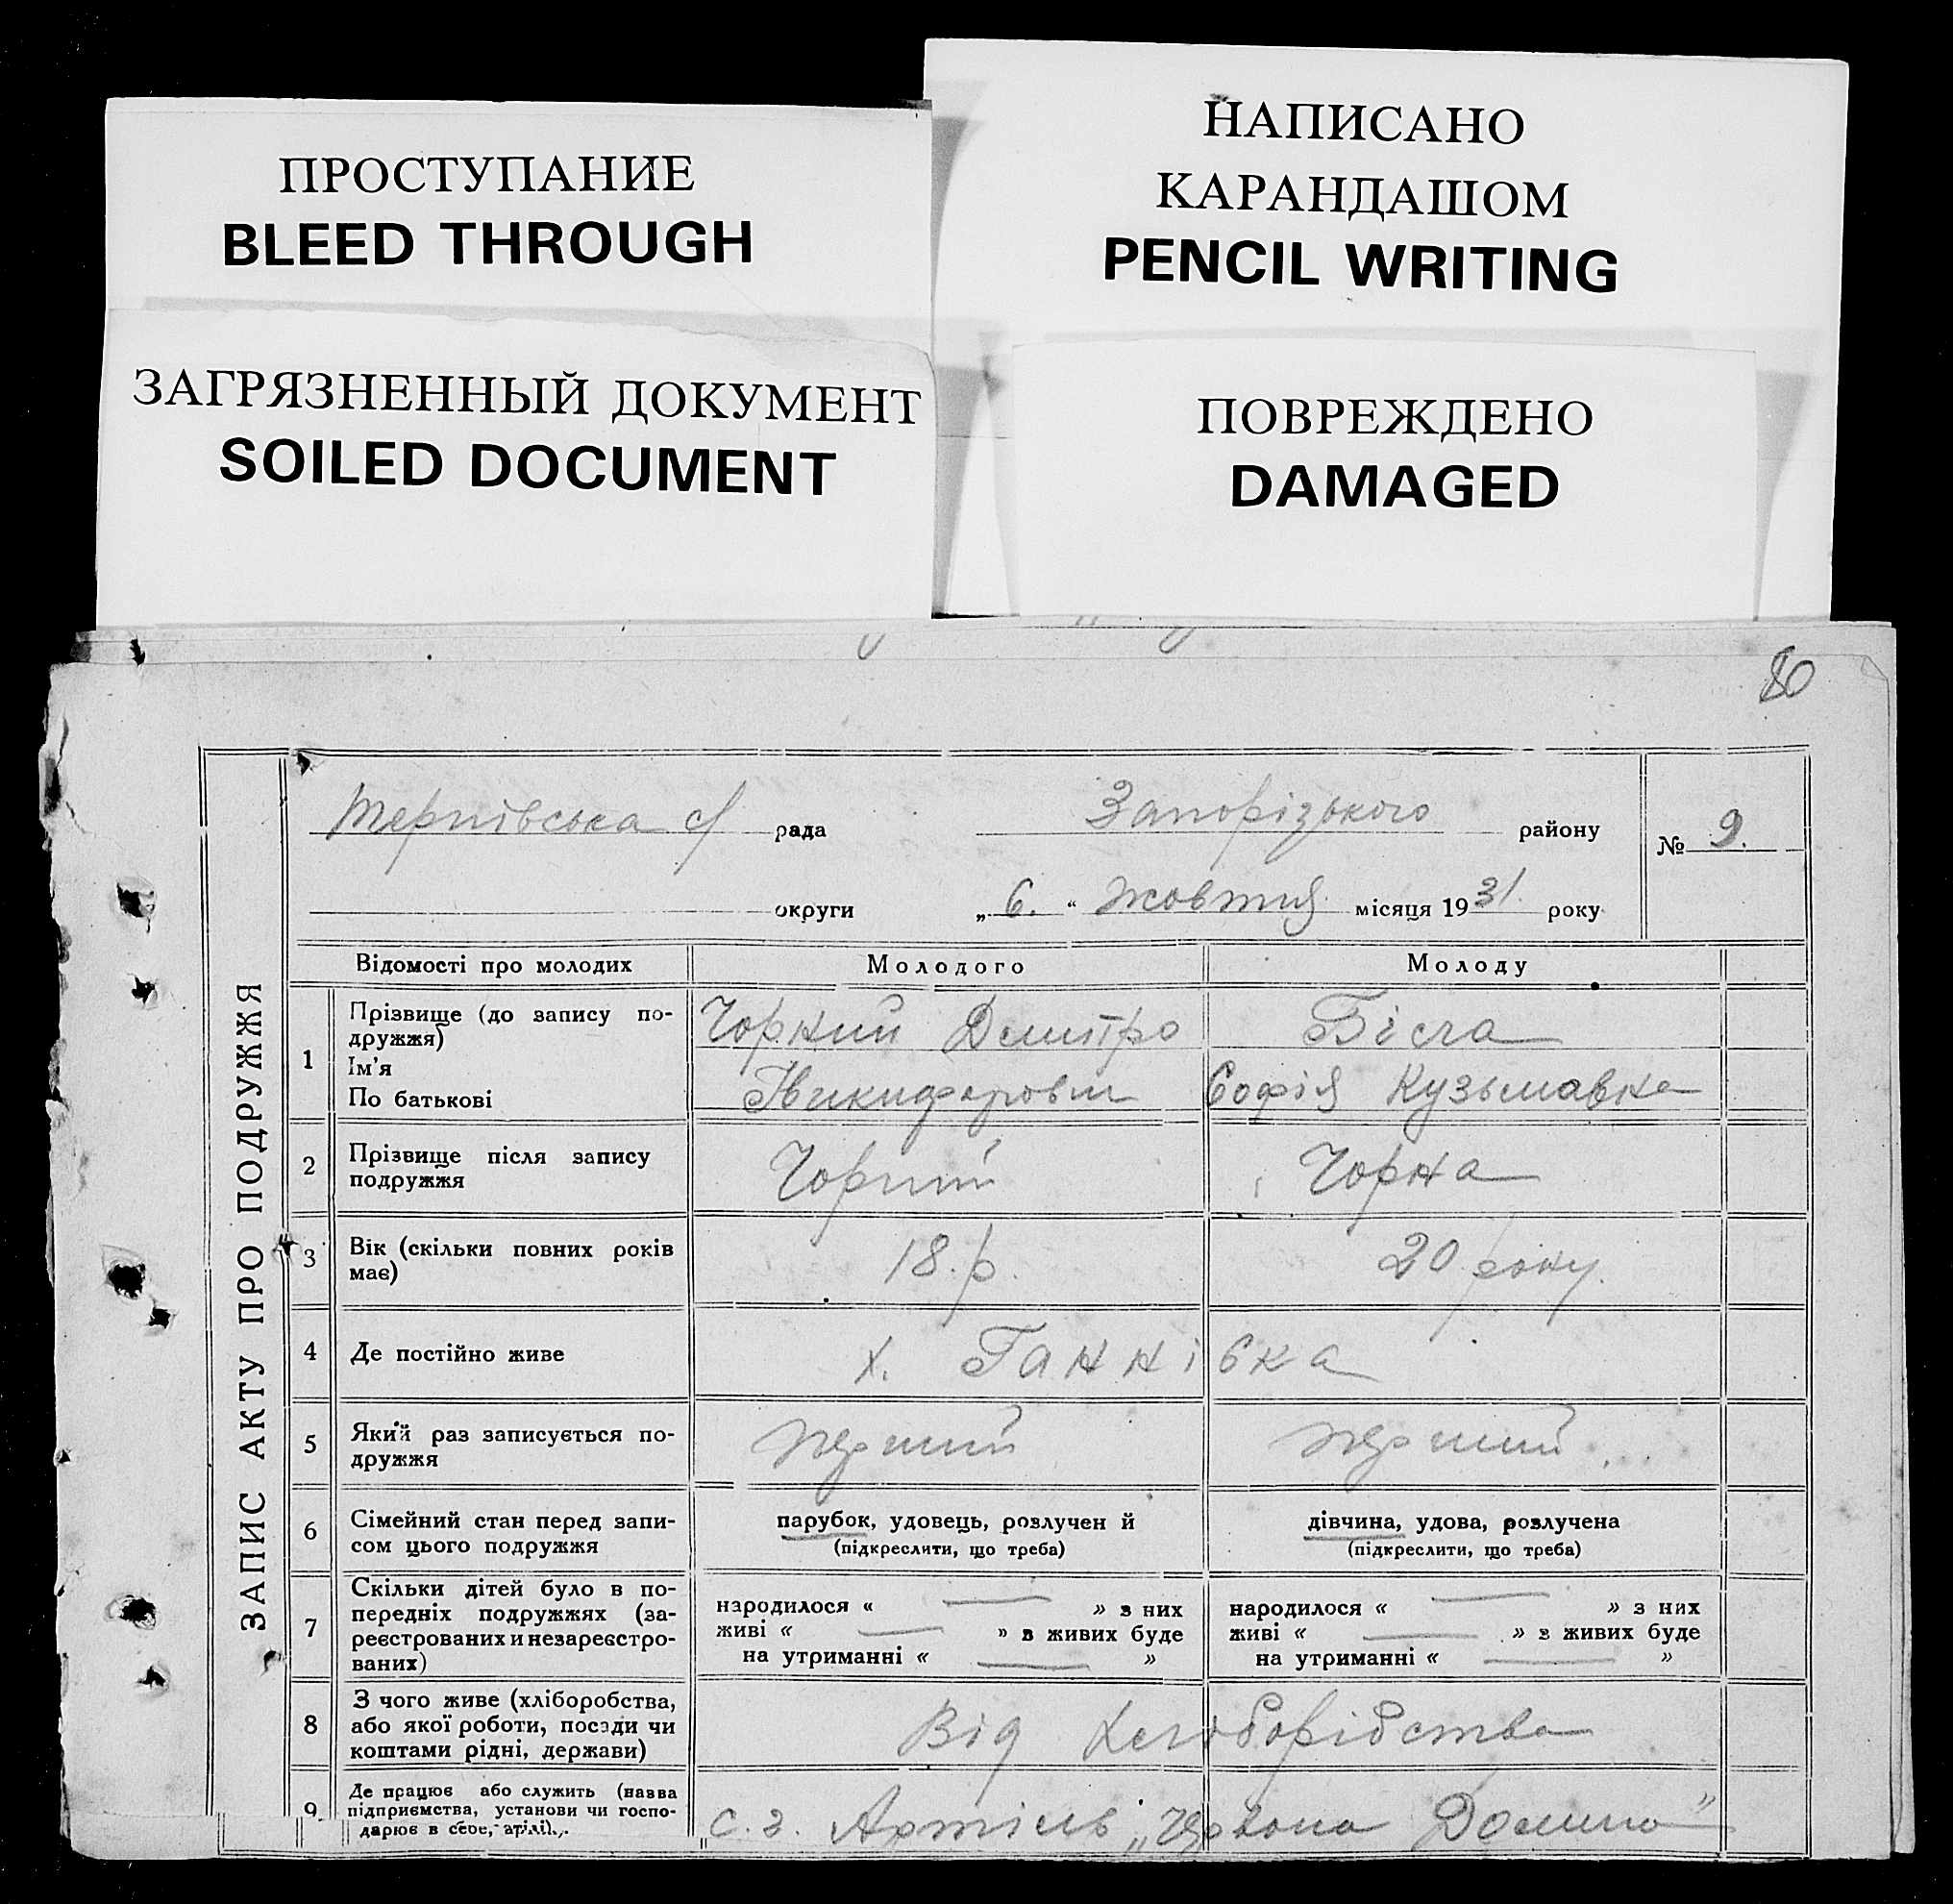 ПРОСТУПАНИЕ
BLEED THROUGH
НАПИСАНО
КАРАНДАШОМ
PENCIL WRITING
ЗАГРЯЗНЕННЫЙ ДОКУМЕНТ
SOILED DOCUMENT
ПОВРЕЖДЕНО
DAMAGED
80
ЗАПИС АКТУ ПРО ПОДРУЖЖЯ
с/ рада Запорізького району № 9.
округи „6.“ жовтня місяця 1931 року
Відомості про молодих Молодого Молоду
1 Прізвище (до запису по-
дружжя)
Ім'я
По батькові
Чорний Дмитро
Никифорович
Біла
Софія Кузьмавка
2 Прізвище після запису
подружжя
Чорний Чорна
3 Вік (скільки повних років
має)
18.р. 20 року.
4 Де постійно живе х. Ганнівка
5 Який раз записується по-
дружжя
перший перший
6 Сімейний стан перед запи-
сом цього подружжя
парубок, удовець, розлучен й
(підкреслити, що треба)
дівчина, удова, розлучена
(підкреслити, що треба)
7 Скільки дітей було в по-
передніх подружжях (за-
реєстрованих и незареєстро-
ваних)
народилося « — » з них
живі « — » з живих буде
на утриманні « — »
народилося « — » з них
живі « — » з живих буде
на утриманні « — »
8 З чого живе (хліборобства,
або якої роботи, посади чи
коштами рідні, держави)
Від хліборобства
9 Де працює або служить (назва
підприємства, установи чи госпо-
дарює в себе, артілі).
с. г. Артіль „Червона Долина"